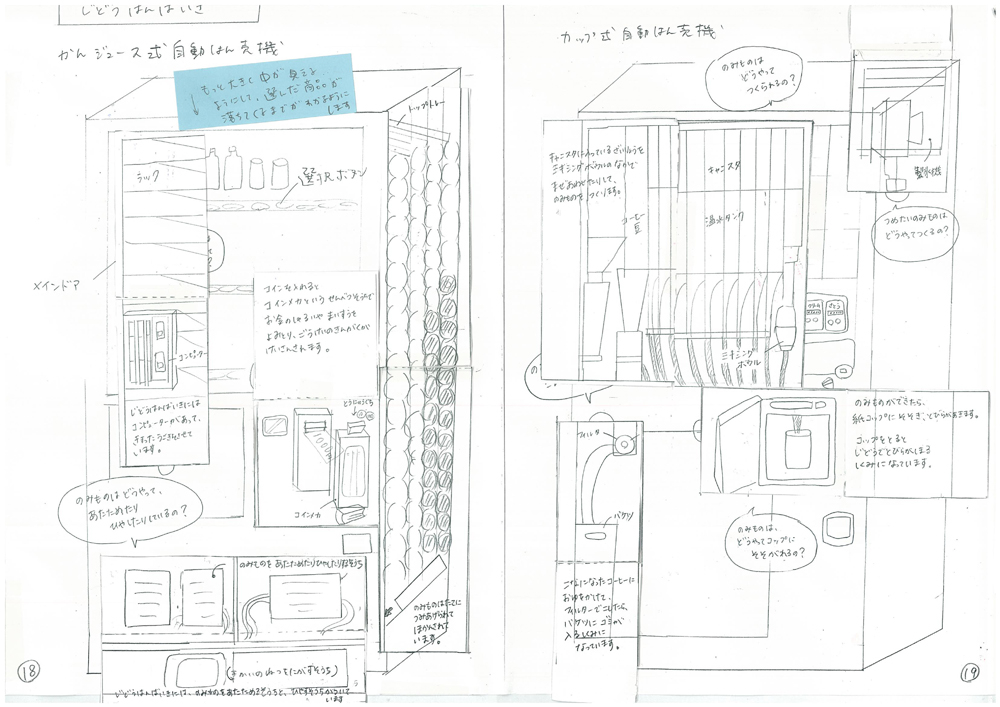 じどうはんばいき
かんジュース式自動はん売機
もっと大きく中が見える
ようにして、選んだ商品が
落ちてくるまでがわかるように
します
トップトレー
ラック
選択ボタン
メインドア
コインを入れると
コインメカという せんべつそうちで
お金のしゅるいや まいすうを
よみとり、ごうけいのきんがくが
けいさんされます。
コンピューター
じどうはんばいきには
コンピューターがあって、
きまったうごきをさせて
います。
とうにゅうぐち
コインメカ
のみものはどうやって、
あたためたり
ひやしたりしているの?
のみものを あたためたりひやしたりするそうち
のみものはたてに
つみあげられて
ほかんされて
います。
(きかいのねつをにがすそうち)
じどうはんばいきには、のみものをあたためるそうちと、ひやすそうちがついて
います
18
カップ式自動はん売機
のみものは
どうやって
つくられるの?
キャニスタに入っているざいりょうを
ミキシングボウルのなかで
まぜあわせたりして、
のみものを、つくります。
キャニスタ
湯水タンク
コーヒー
豆
製氷機
つめたいのみものは
どうやってつくるの?
クリーム
さとう
ミキシング
ボウル
のみものができたら、
紙コップにそそぎ、とびらがあきます。
コップをとると
じどうでとびらがしまる
しくみになっています。
フィルタ
バケツ
のみものは、
どうやってコップに
そそがれるの?
こなになったコーヒーに
おゆをかけて、
フィルターでこしたら、
バケツに ゴミが
入るしくみに
なっています。
19